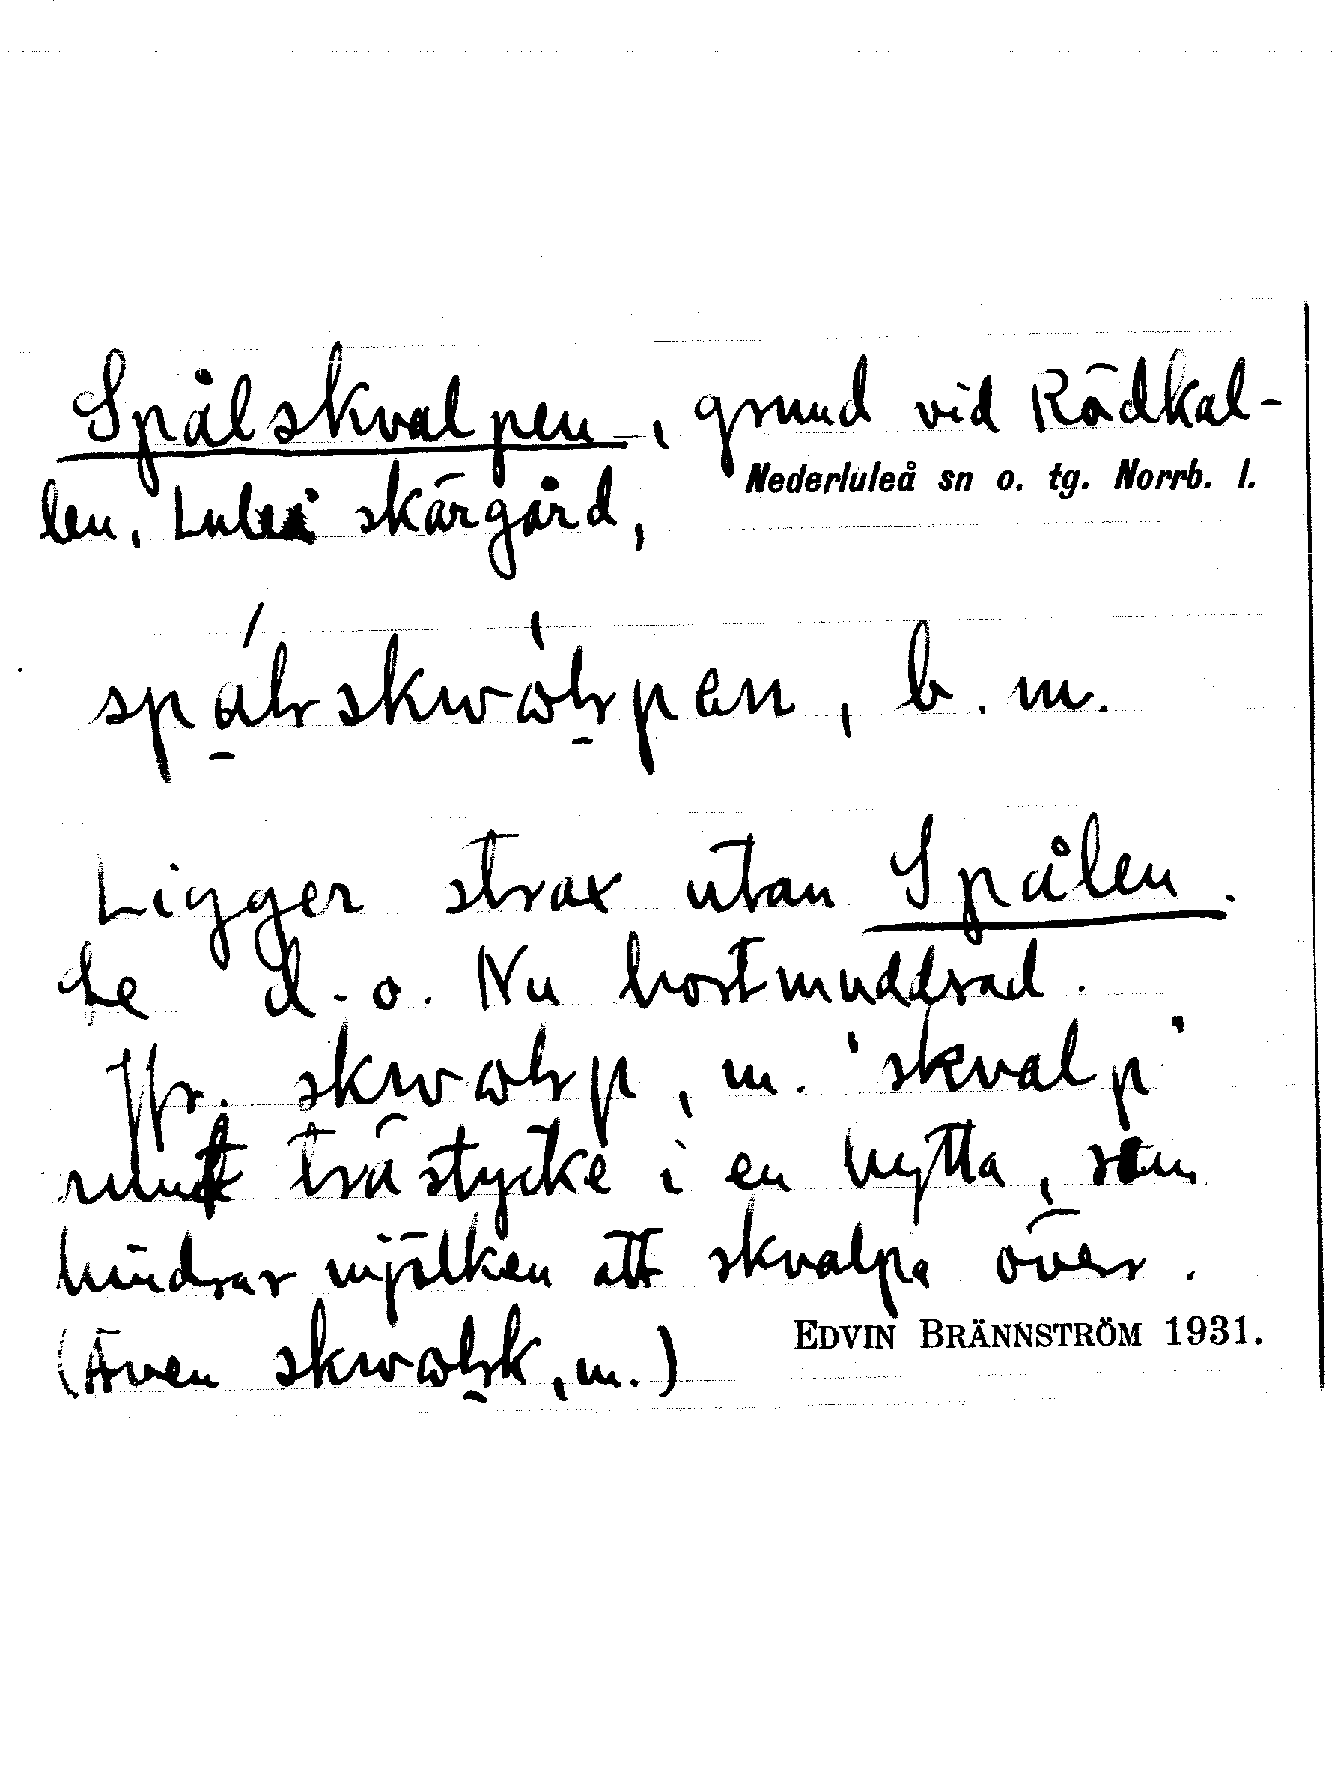 Spålskvalpen, grund vid Rödkal-
len, Luleå skärgård,
Nederluleå sn o. tg. Norrb. l.
b. m.
Ligger strax utan Spålen.
Se d. o. Nu bortmuddrad.
Jfr. m. 'skvalp'
runt trästycke i en bytta, som
hindrar mjölken att skvalpa över.
(Även m.)
EDVIN BRÄNNSTRÖM 1931.